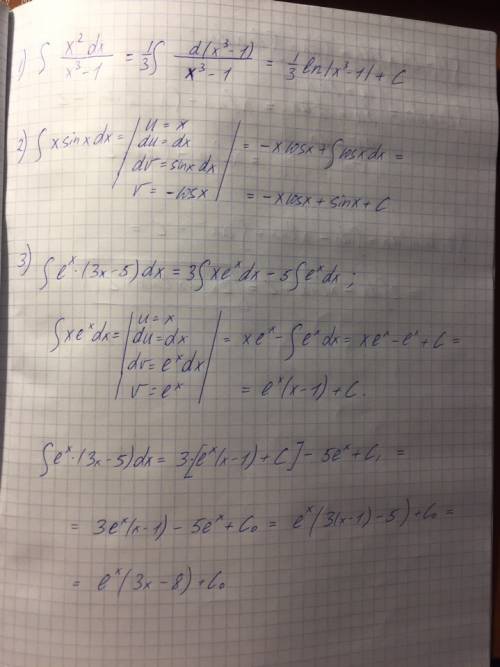 1) ∫ x² dx / x³-1 = 1/3 ∫ d(x³-1) / x³-1 = 1/3 ln|x³-1| + C
2) ∫ x sinx dx = | u = x
du = dx
dv = sinx dx
v = -cosx | = -x cosx + ∫ cosx dx =
= -x cosx + sinx + C
3) ∫ eˣ·(3x-5) dx = 3∫ xeˣ dx - 5∫ eˣ dx ;
∫ xeˣ dx = | u = x
du = dx
dv = eˣ dx
v = eˣ | = xeˣ - ∫ eˣ dx = xeˣ - eˣ + C =
= eˣ(x-1) + C.
∫ eˣ·(3x-5) dx = 3·[eˣ(x-1) + C] - 5eˣ + C₁ =
= 3eˣ(x-1) - 5eˣ + C₀ = eˣ(3(x-1)-5) + C₀ =
= eˣ(3x-8) + C₀